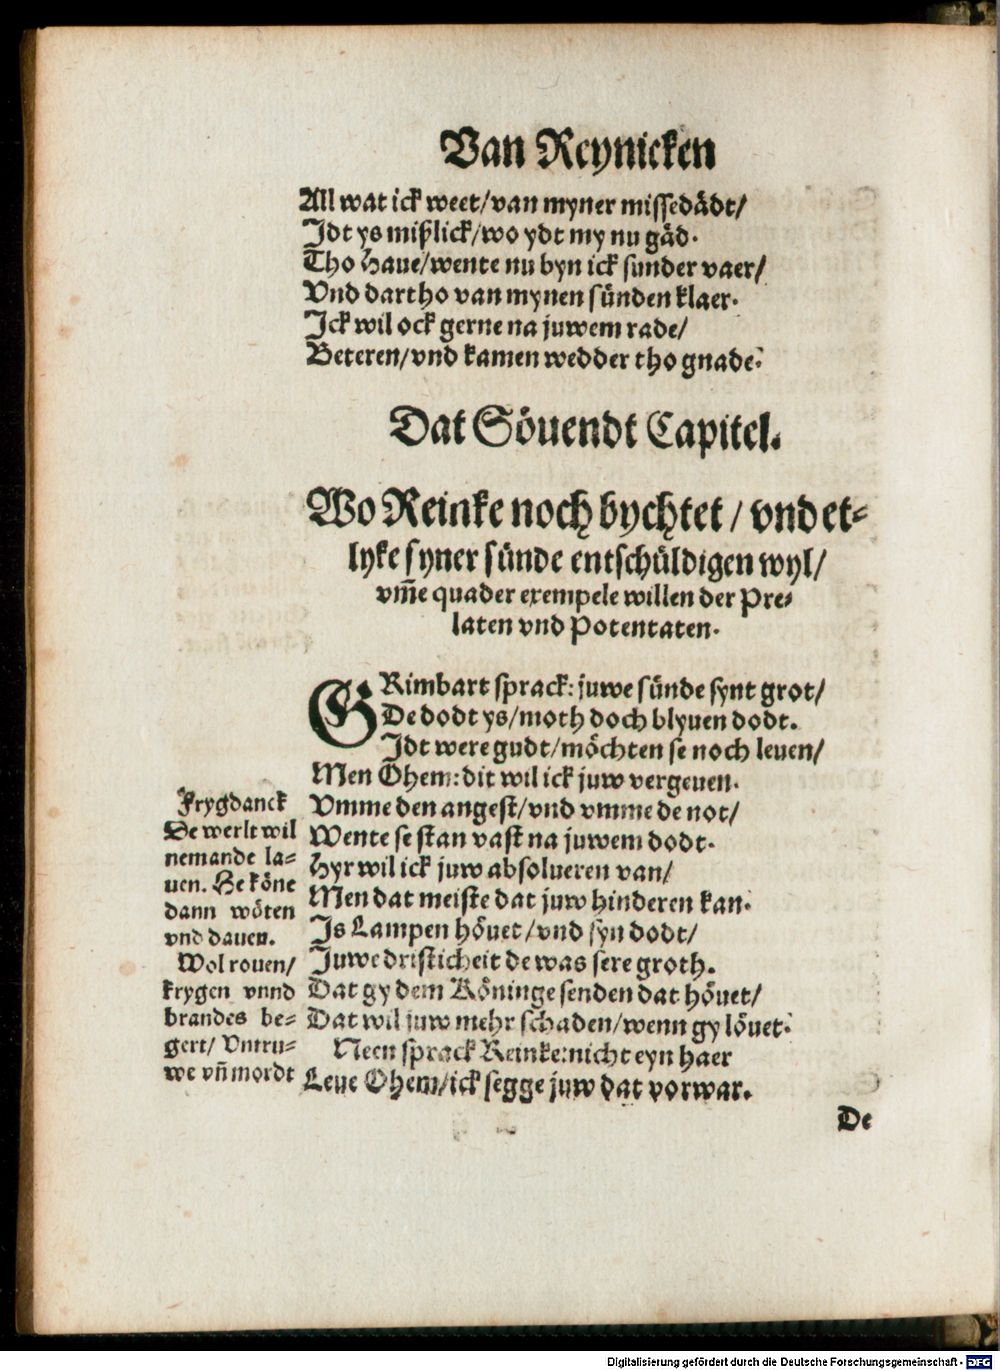 Van Reynicken
All wat ick weet/van myner missedådt/
Jdt ys mißlick/wo ydt my nu gåd.
Tho Haue/wente nu byn ick sunder vaer/
Vnd dartho van mynen sünden klaer.
Jck wil ock gerne na juwem rade/
Beteren/vnd kamen wedder tho gnade.
Dat Söuendt Capitel.
Wo Reinke noch bychtet / vnd et-
lyke syner sünde entschüldigen wyl/
vm̃e quader exempele willen der Pre-
laten vnd Potentaten.
GRimbart sprack: juwe sünde synt grot/
De dodt ys/moth doch blyuen dodt.
Jdt were gudt/möchten se noch leuen/
Men Ohem: dit wil ick juw vergeuen.
Vmme den angest/vnd vmme de not/
Wente se stan vast na juwem dodt.
Hyr wil ick juw absolueren van/
Men dat meiste dat juw hinderen kan.
Js Lampen höuet/vnd syn dodt/
Juwe dristicheit de was sere groth.
Dat gy dem Köninge senden dat höuet/
Dat wil juw mehr schaden/wenn gy löuet.
Neen sprack Reinke: nicht eyn haer
Leue Ohem/ick segge juw dat vorwar.
Frygdanck
De werlt wil
nemande la-
uen. Se köne
dann wöten
vnd dauen.
Wol rouen/
krygen vnnd
brandes be-
gert/ Vntru-
we vñ mordt
De
Digitalisierung gefördert durch die Deutsche Forschungsgemeinschaft - DFG